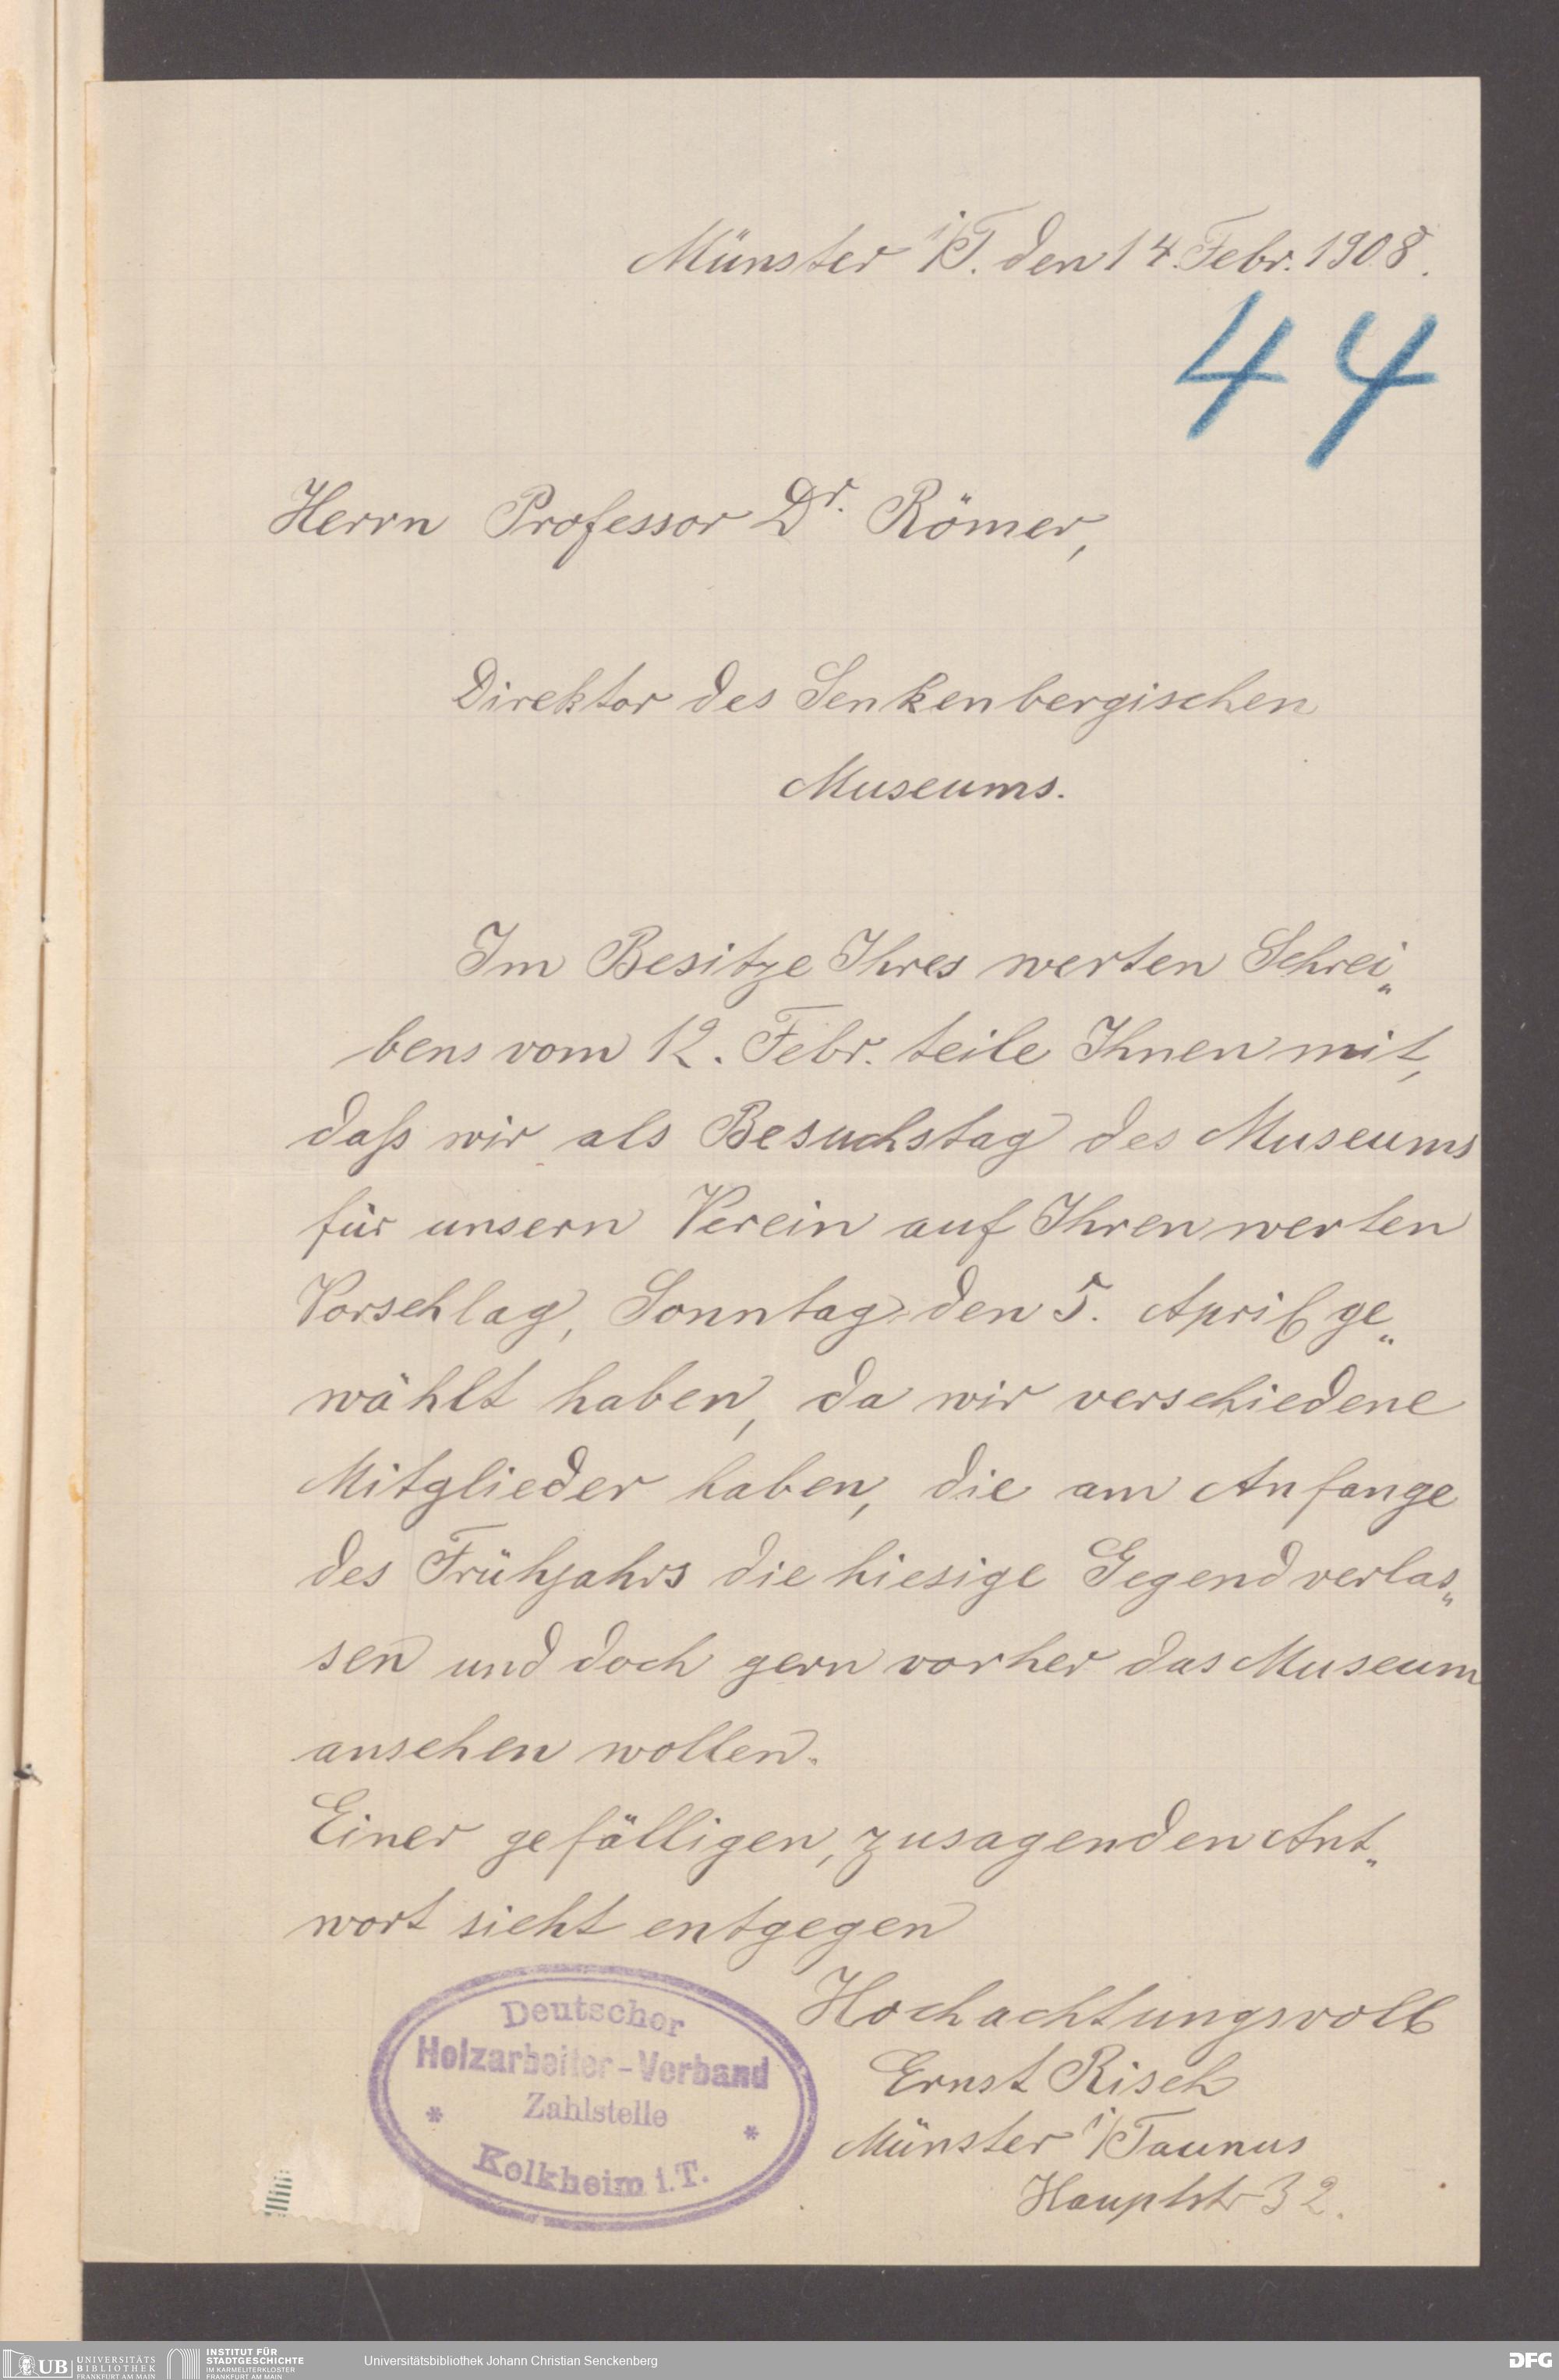 Münster i/T. den 14. Febr. 1908.
44
Herrn Professor Dr. Römer,
Direktor des Senkenbergischen
Museums.
Im Besitze Ihres werten Schrei„
bens vom 12. Febr. teile Ihnen mit,
daß wir als Besuchstag des Museums
für unsern Verein auf Ihren werten
Vorschlag, Sonntag den 5. April ge„
wählt haben, da wir verschiedene
Mitglieder haben, die am Anfange
des Frühjahrs die hiesige Gegend verlas„
sen und doch gern vorher das Museum
ansehen wollen.
Einer gefälligen, zusagenden Ant„
wort sieht entgegen
Hochachtungsvoll
Ernst Risch
Münster i/Taunus
Hauptstr 32.
Deutscher
Holzarbeiter-Verband
Zahlstelle
* *
Kelkheim i. T.
UB UNIVERSITÄTS
BIBLIOTHEK
FRANKFURT AM MAIN
INSTITUT FÜR
STADTGESCHICHTE
IM KARMELITERKLOSTER
FRANKFURT AM MAIN
Universitätsbibliothek Johann Christian Senckenberg
DFG